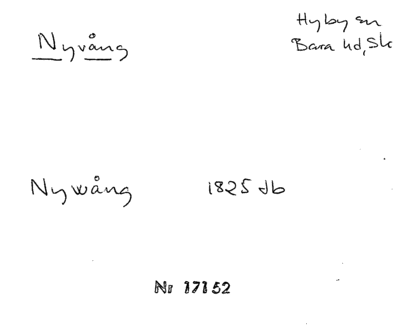 Nyvång
Hyby sn
Bara hd, Sk
Nywång 1825 db
Nr 17152